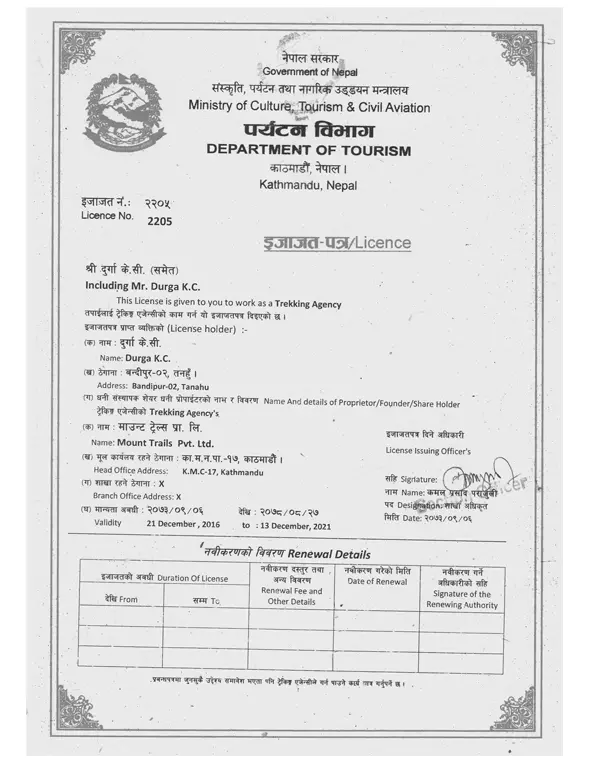 नेपाल सरकार
Government of Nepal
संस्कृति, पर्यटन तथा नागरिक उड्डयन मन्त्रालय
Ministry of Culture, Tourism & Civil Aviation
पर्यटन विभाग
DEPARTMENT OF TOURISM
काठमाडौं, नेपाल ।
Kathmandu, Nepal
इजाजत नं.: २२०५
Licence No. 2205
इजाजत-पत्र/Licence
श्री दुर्गा के.सी. (समेत)
Including Mr. Durga K.C.
This License is given to you to work as a Trekking Agency
तपाईलाई ट्रेकिङ्ग एजेन्सीको काम गर्न यो इजाजतपत्र दिइएको छ ।
इजाजतपत्र प्राप्त व्यक्तिको (License holder) :-
(क) नाम : दुर्गा के.सी.
Name: Durga K.C.
(ख) ठेगाना : बन्दीपुर-०२, तनहुँ ।
Address: Bandipur-02, Tanahu
(ग) धनी संस्थापक शेयर धनी प्रोपाईटरको नाम र विवरण Name And details of Proprietor/Founder/Share Holder
ट्रेकिङ्ग एजेन्सीको Trekking Agency's
(क) नाम : माउन्ट ट्रेल्स प्रा. लि.
Name: Mount Trails Pvt. Ltd.
(ख) मूल कार्यलय रहने ठेगाना : का.म.न.पा.-१७, काठमाडौं ।
Head Office Address: K.M.C-17, Kathmandu
(ग) शाखा रहने ठेगाना : X
Branch Office Address: X
(घ) मान्यता अवधी : २०७३/०९/०६ देखि : २०७८/०८/२७
Validity 21 December, 2016 to : 13 December, 2021
इजाजतपत्र दिने अधिकारी
License Issuing Officer's
सहि Signature:
नाम Name: कमल प्रसाद पराजुली
पद Designation: शाखा अधिकृत
Section Officer
मिति Date: २०७३/०९/०६
नवीकरणको विवरण Renewal Details
इजाजतको अवधी Duration Of License
देखि From
सम्म To
नवीकरण दस्तुर तथा
अन्य विवरण
Renewal Fee and
Other Details
नवीकरण गरेको मिति
Date of Renewal
नवीकरण गर्ने
अधिकारीको सहि
Signature of the
Renewing Authority
प्रबन्धपत्रमा जुनसुकै उद्देश्य समावेश भएता पनि ट्रेकिङ्ग एजेन्सीले गर्न पाउने कार्य मात्र गर्नुपर्ने छ ।